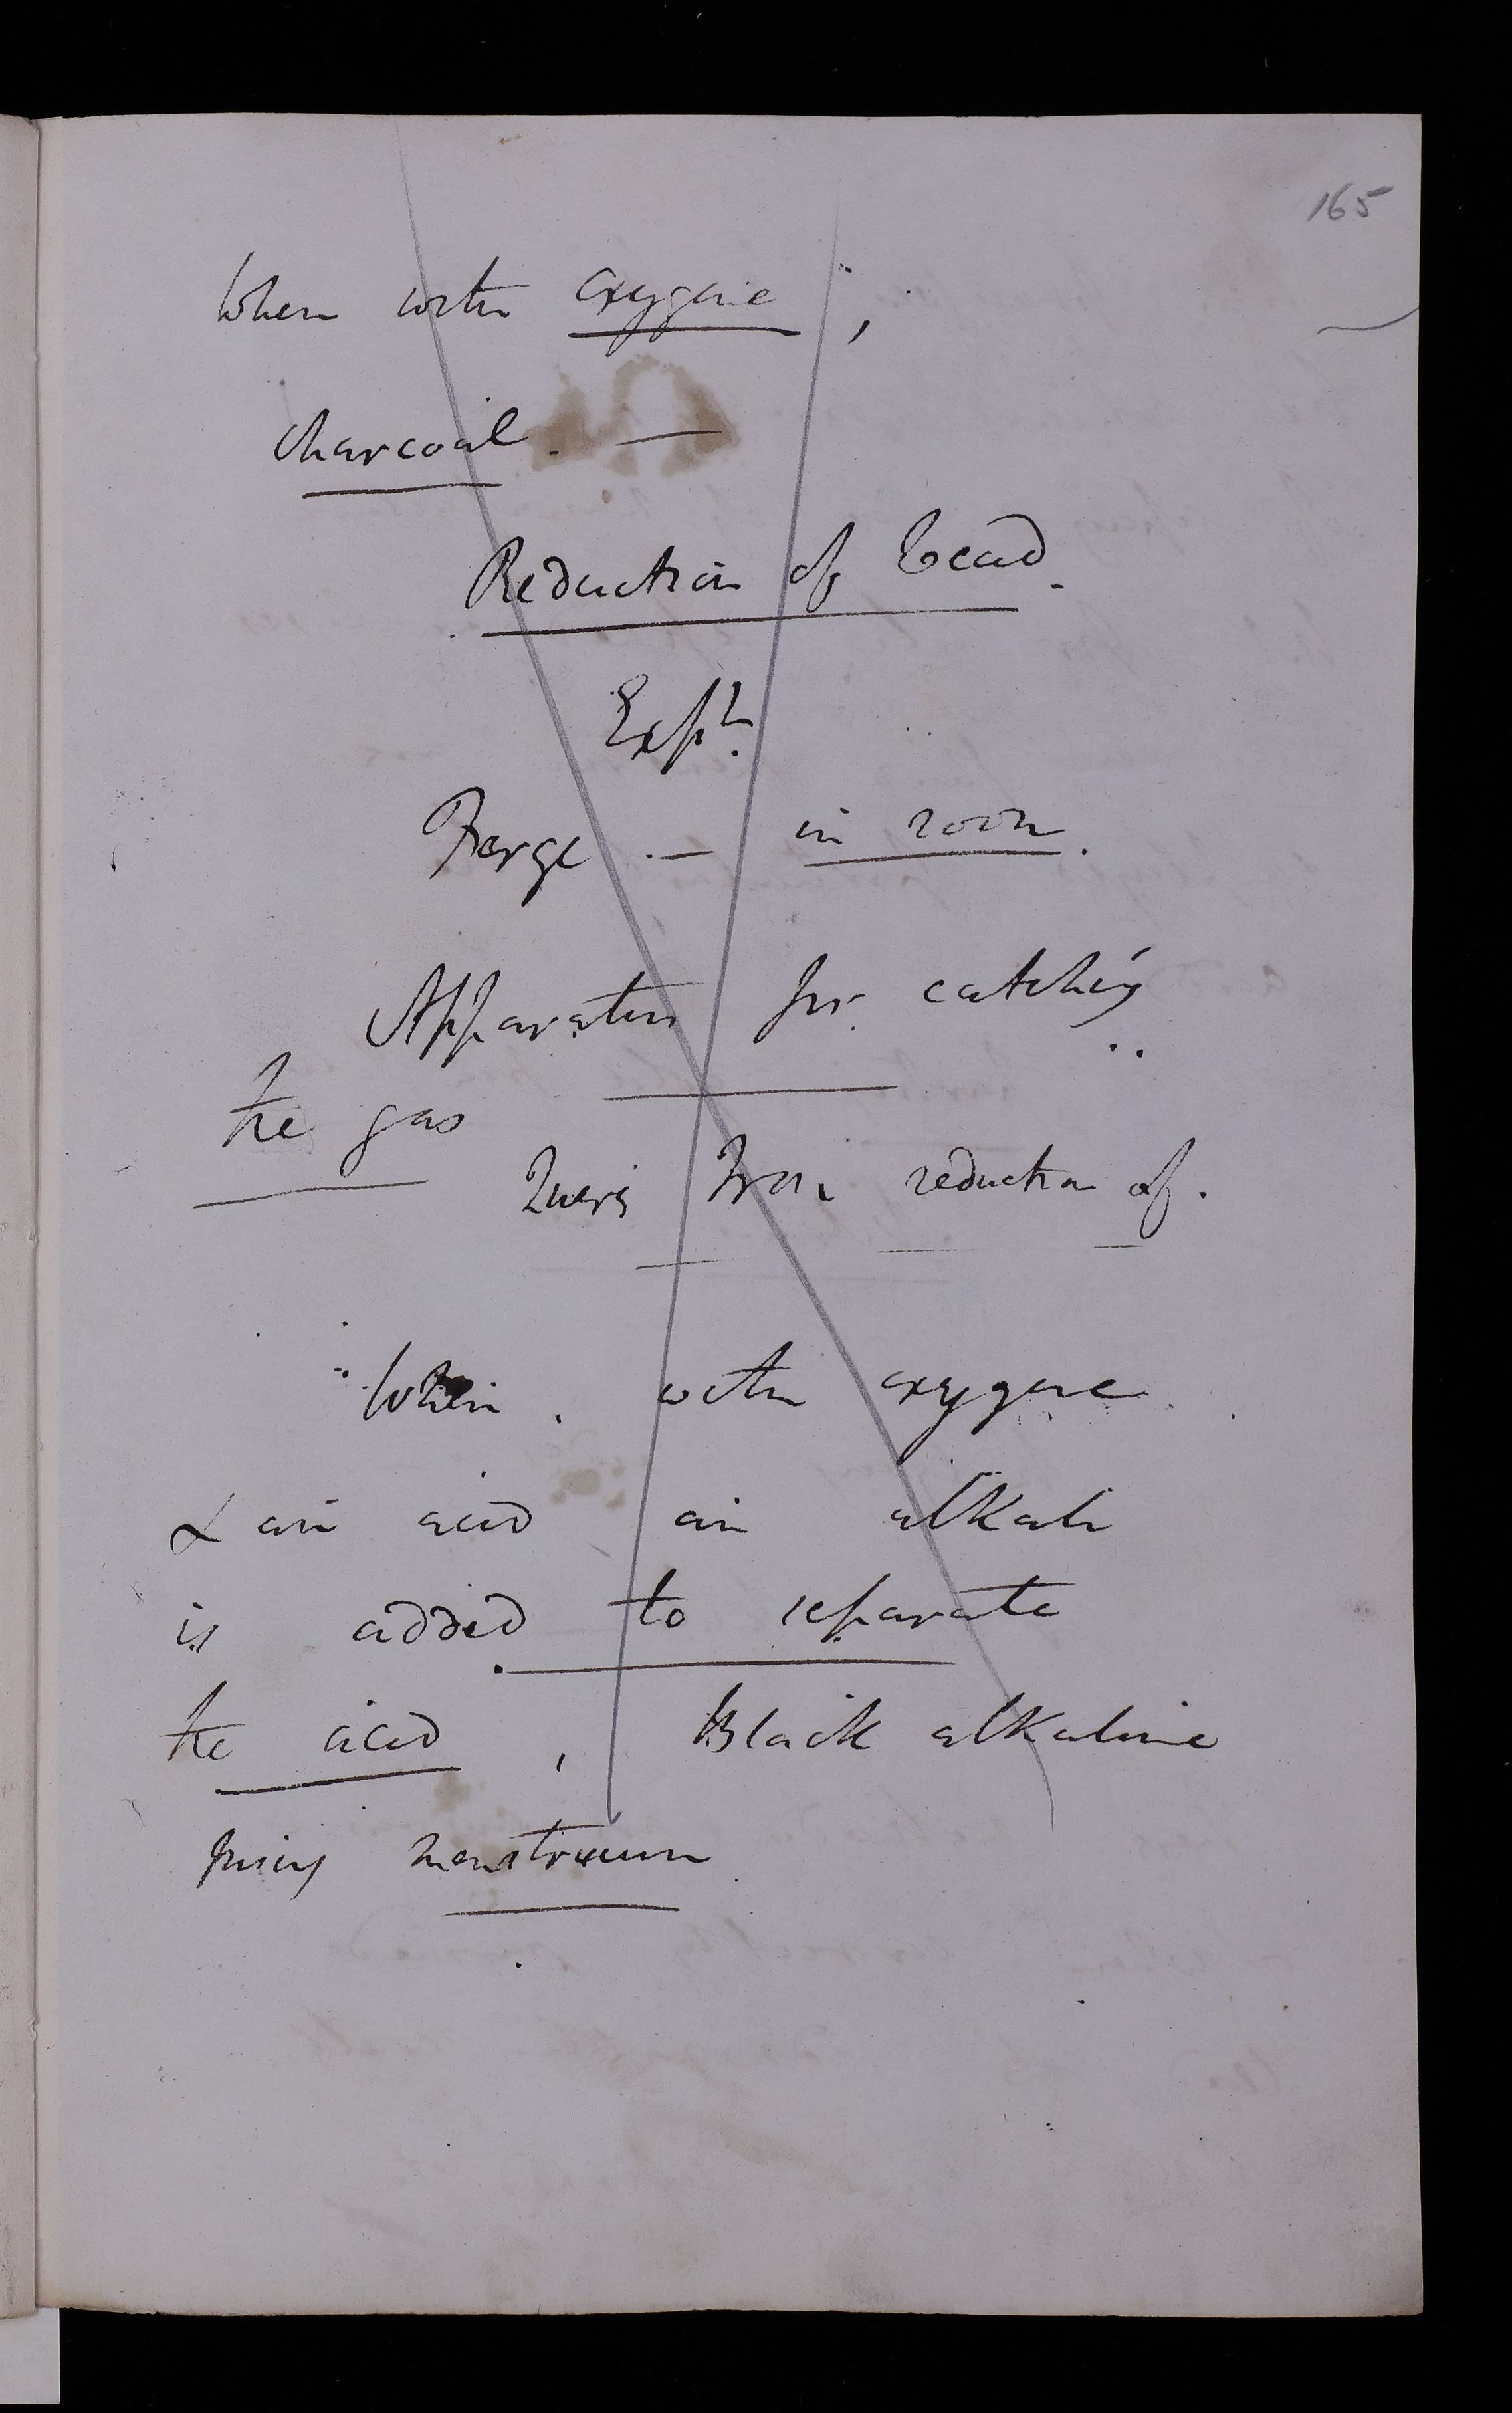 165
When with oxygene,
charcoal. —
Reduction of Lead.
Expt.
Forge — in room.
Apparatus for catching
the gas
Iron reduction of.
When with oxygene
& an acid an alkali
is added to separate
the acid, Black alkaline
menstruum